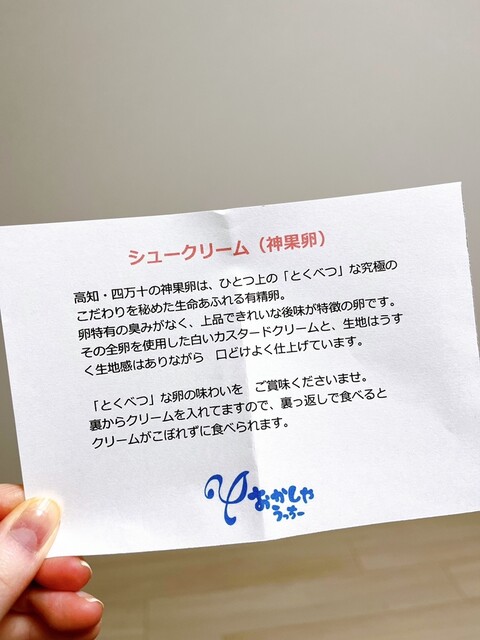 シュークリーム（神果卵）
高知・四万十の神果卵は、ひとつ上の「とくべつ」な究極の
こだわりを秘めた生命あふれる有精卵。
卵特有の臭みがなく、上品できれいな後味が特徴の卵です。
その全卵を使用した白いカスタードクリームと、生地はうす
く生地感はありながら　口どけよく仕上げています。
「とくべつ」な卵の味わいを　ご賞味くださいませ。
裏からクリームを入れてますので、裏っ返しで食べると
クリームがこぼれずに食べられます。
おかしや
うっちー